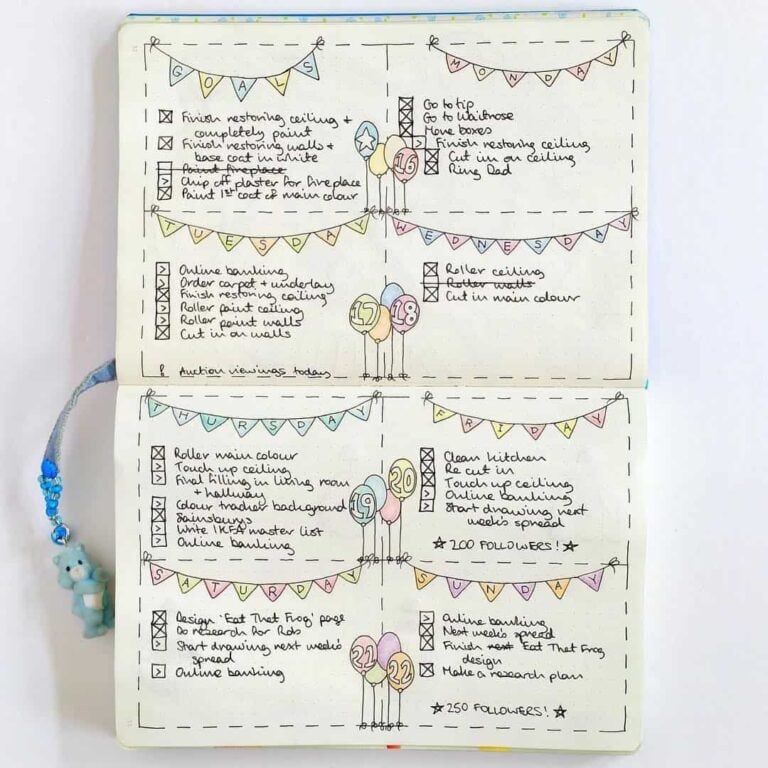 GOALS
Finish restoring ceiling +
completely paint
Finish restoring walls +
base coat in white
Paint fireplace
Chip off plaster for fireplace
Paint 1st coat of main colour
MONDAY
16
Go to tip
Go to Waitrose
Move boxes
Finish restoring ceiling
Cut in on ceiling
Ring Dad
TUESDAY
17
Online banking
Order carpet + underlay
Finish restoring ceiling
Roller paint ceiling
Roller paint walls
Cut in on walls
Auction viewings today
WEDNESDAY
18
Roller ceiling
Roller walls
Cut in main colour
THURSDAY
19
Roller main colour
Touch up ceiling
Final filling in living room
+ hallway
Colour tracker background
Sainsburys
Write IKEA master list
Online banking
FRIDAY
20
Clean kitchen
Re cut in
Touch up ceiling
Online banking
Start drawing next
week's spread
200 FOLLOWERS!
SATURDAY
21
Design 'Eat That Frog' page
Do research for Rob
Start drawing next week's
spread
Online banking
SUNDAY
22
Online banking
Next week's spread
Finish next Eat That Frog
design
Make a research plan
250 FOLLOWERS!